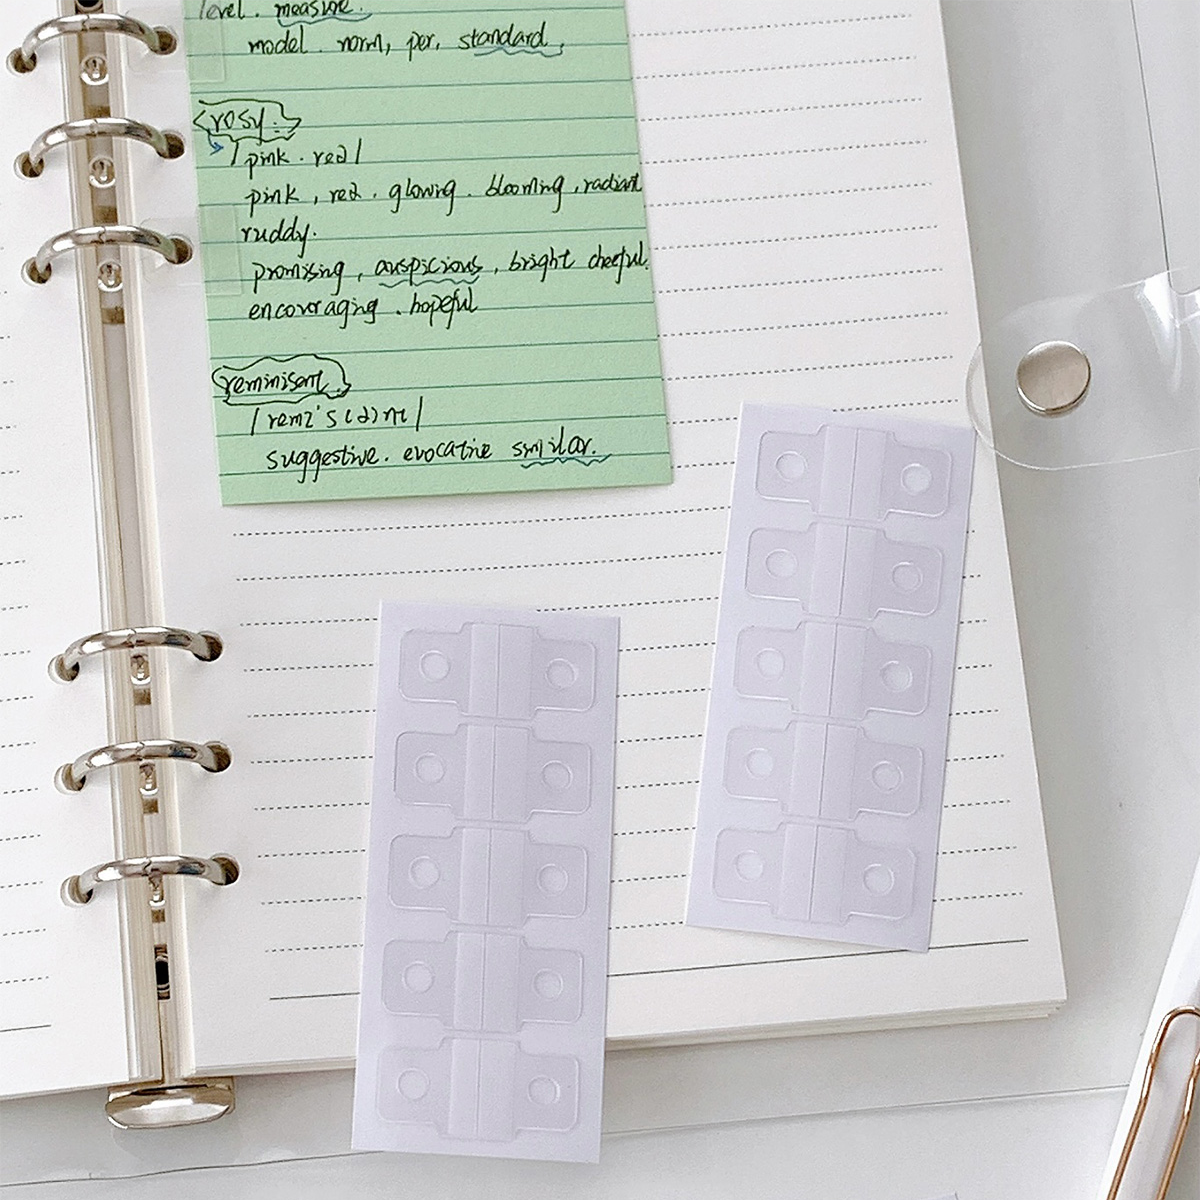 level. measure.
model. norm, per, standard,
rosy.
/pink. red/
pink, red. glowing. blooming, radiant
ruddy.
promising, auspicious, bright cheeful.
encouraging. hopeful
reminisent.
suggestive. evocative similar.